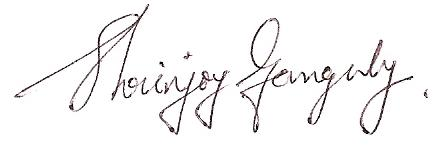 Shounjoy Ganguly.